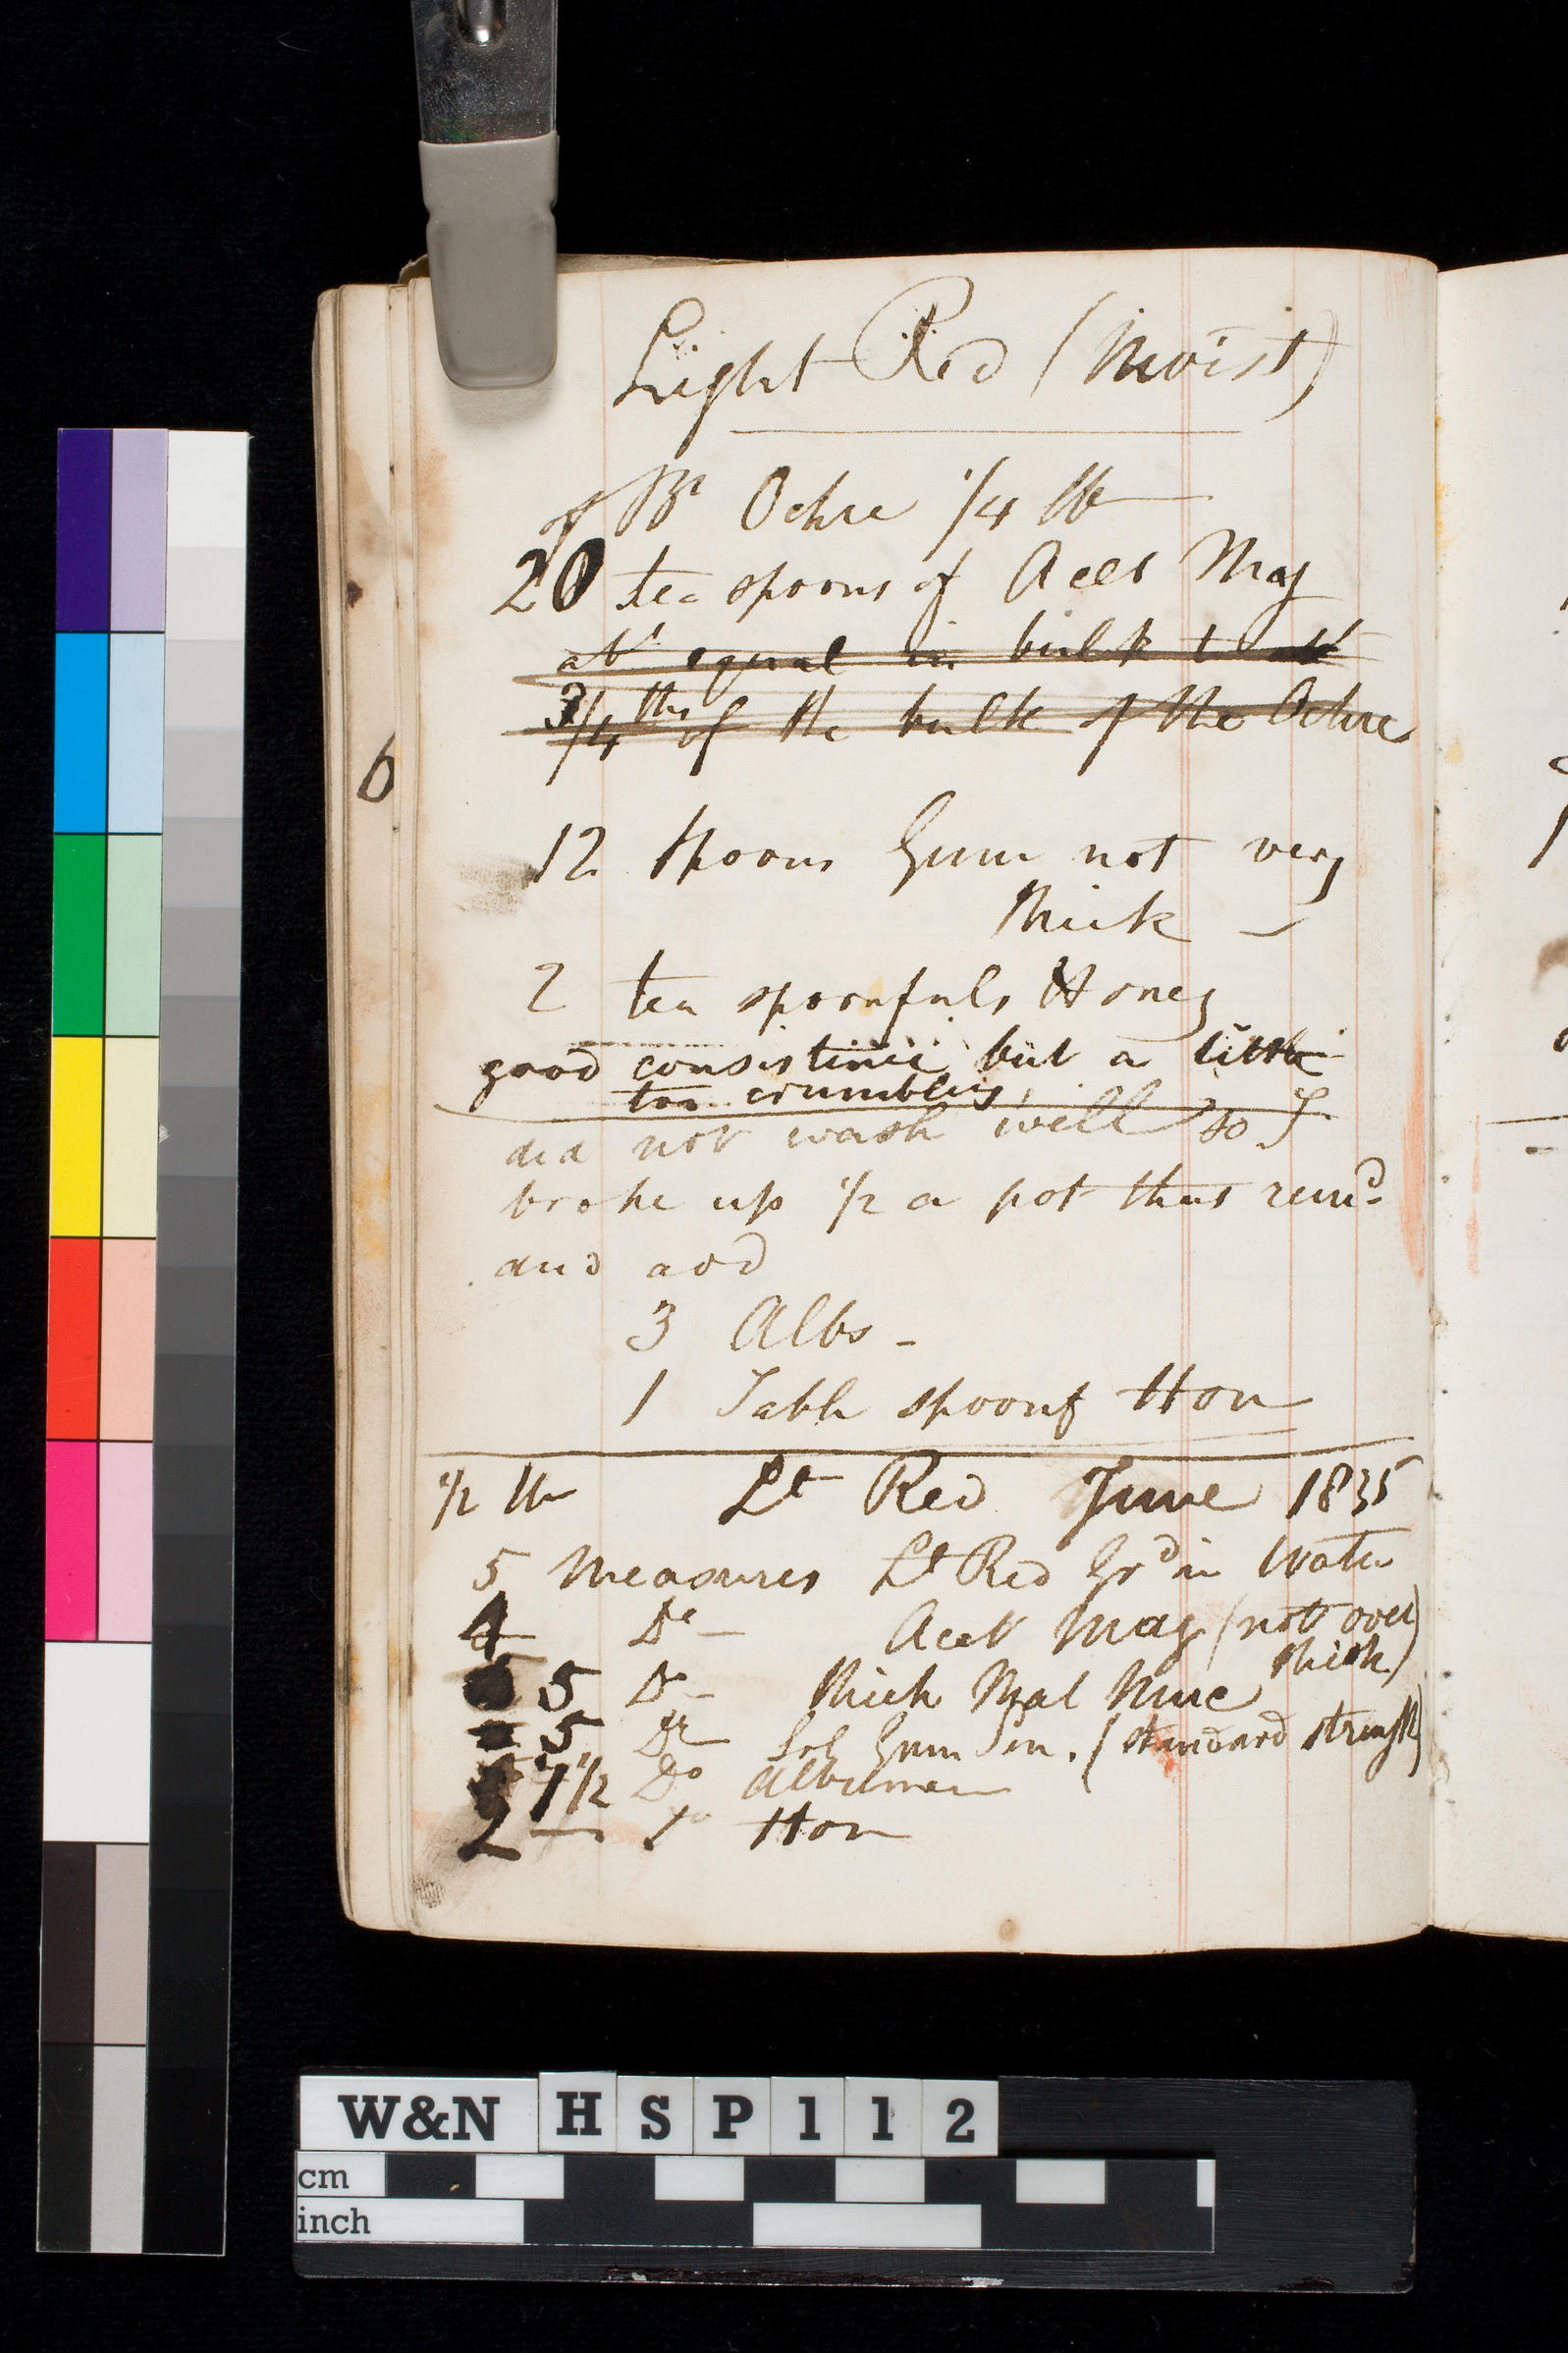 Light Red (Moist)
of Bt Ochre 1/4 lb
20 tea spoons of Acet Mag
abt equal in bulk to abt
3/4ths of the bulk of the Ochre
6
12 Spoons Gum not very
thick
2 tea spoonfuls Honey
good consistence but a little
too crumbley
did not wash well so I
broke up 1/2 a pot thus remd
and add
3 Albs -
1 Table spoonf Hon
1/2 lb Lt Red June 1835
5 Measures Lt Red Grd in Water
4 Do - Acet Mag (not over
thick)
5 Do - thick Mal Muc
5 Do Sol Gum Sen. (standard strength)
1/2 Do Albumen
2 Do Hon
W&N HSP112
cm
inch